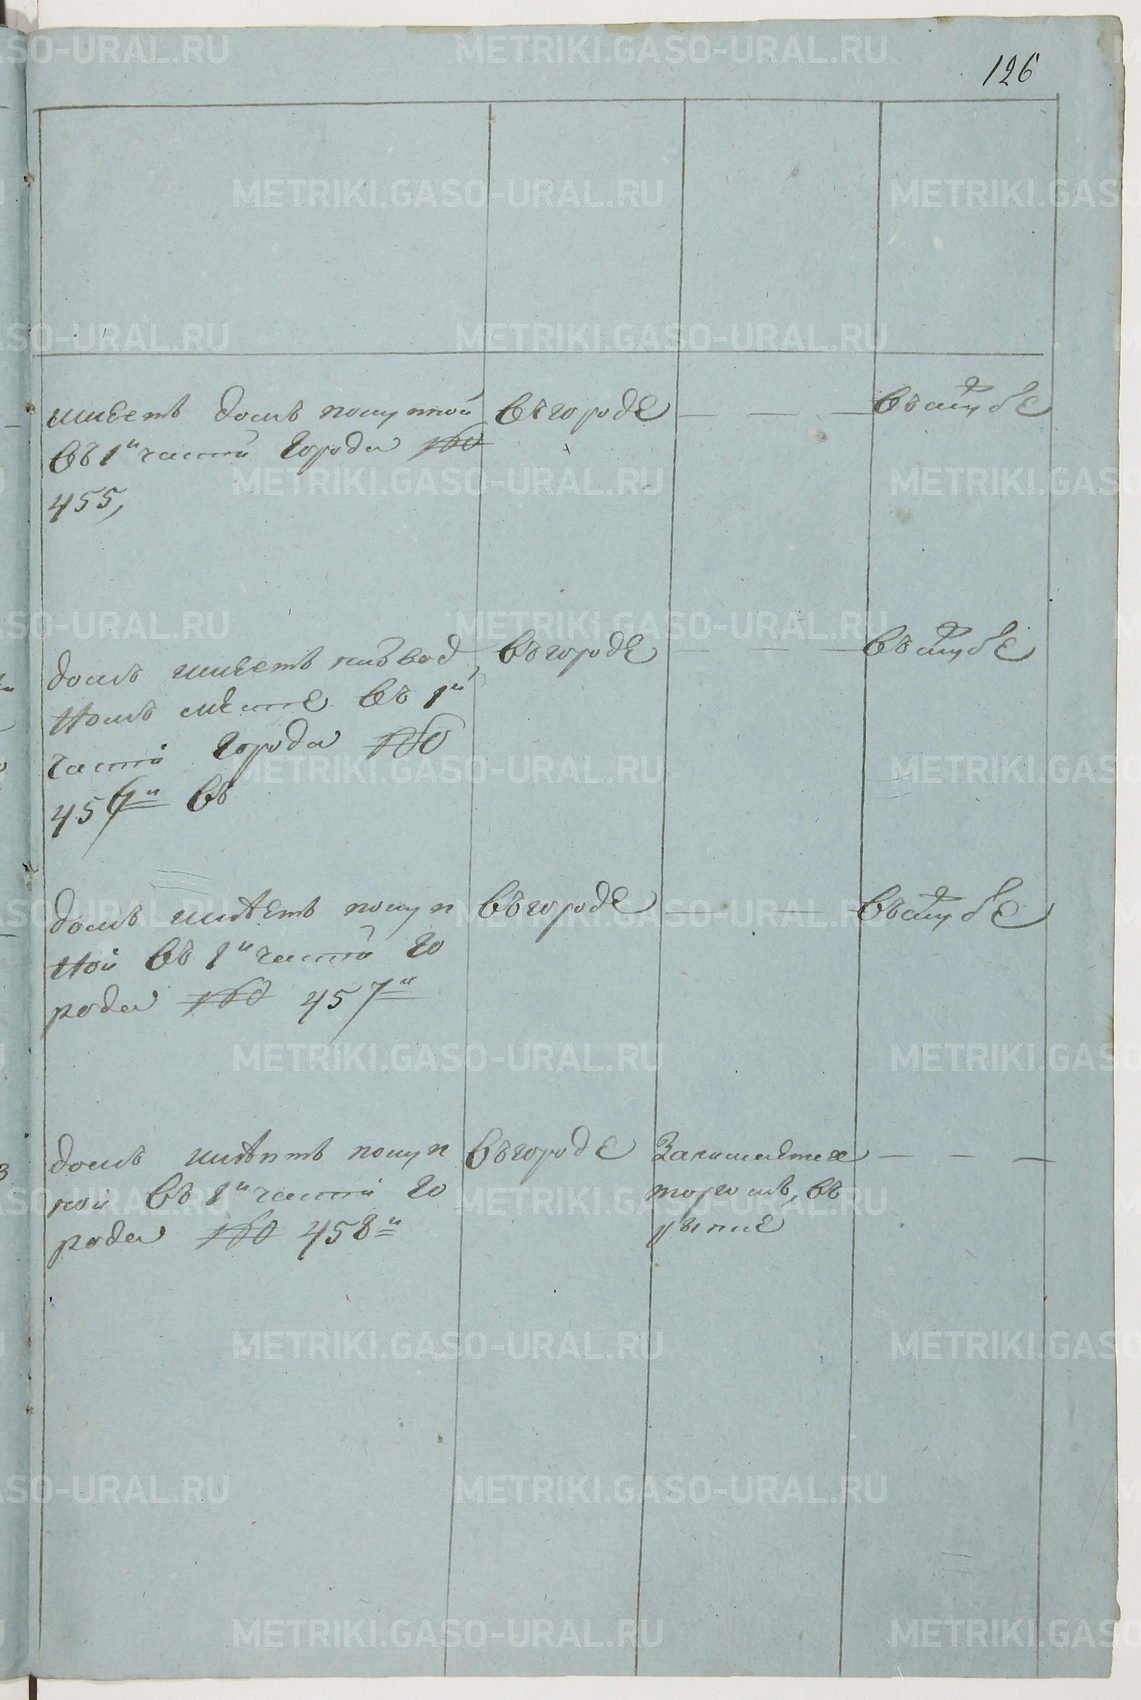 126
имѣетъ домъ покупной
въ 1й части города №
455,
въ городѣ
въ службѣ
домъ имѣетъ на вод
номъ местѣ въ 1й
части города №
456й въ
въ городѣ
въ службѣ
домъ имѣетъ покуп
ной въ 1й части го
рода № 457й
въ городѣ
въ службѣ
домъ имѣетъ покуп
ной въ 1й части го
рода № 458й
въ городѣ
Занимается
торгомъ, въ
рынкѣ
METRIKI.GASO-URAL.RU